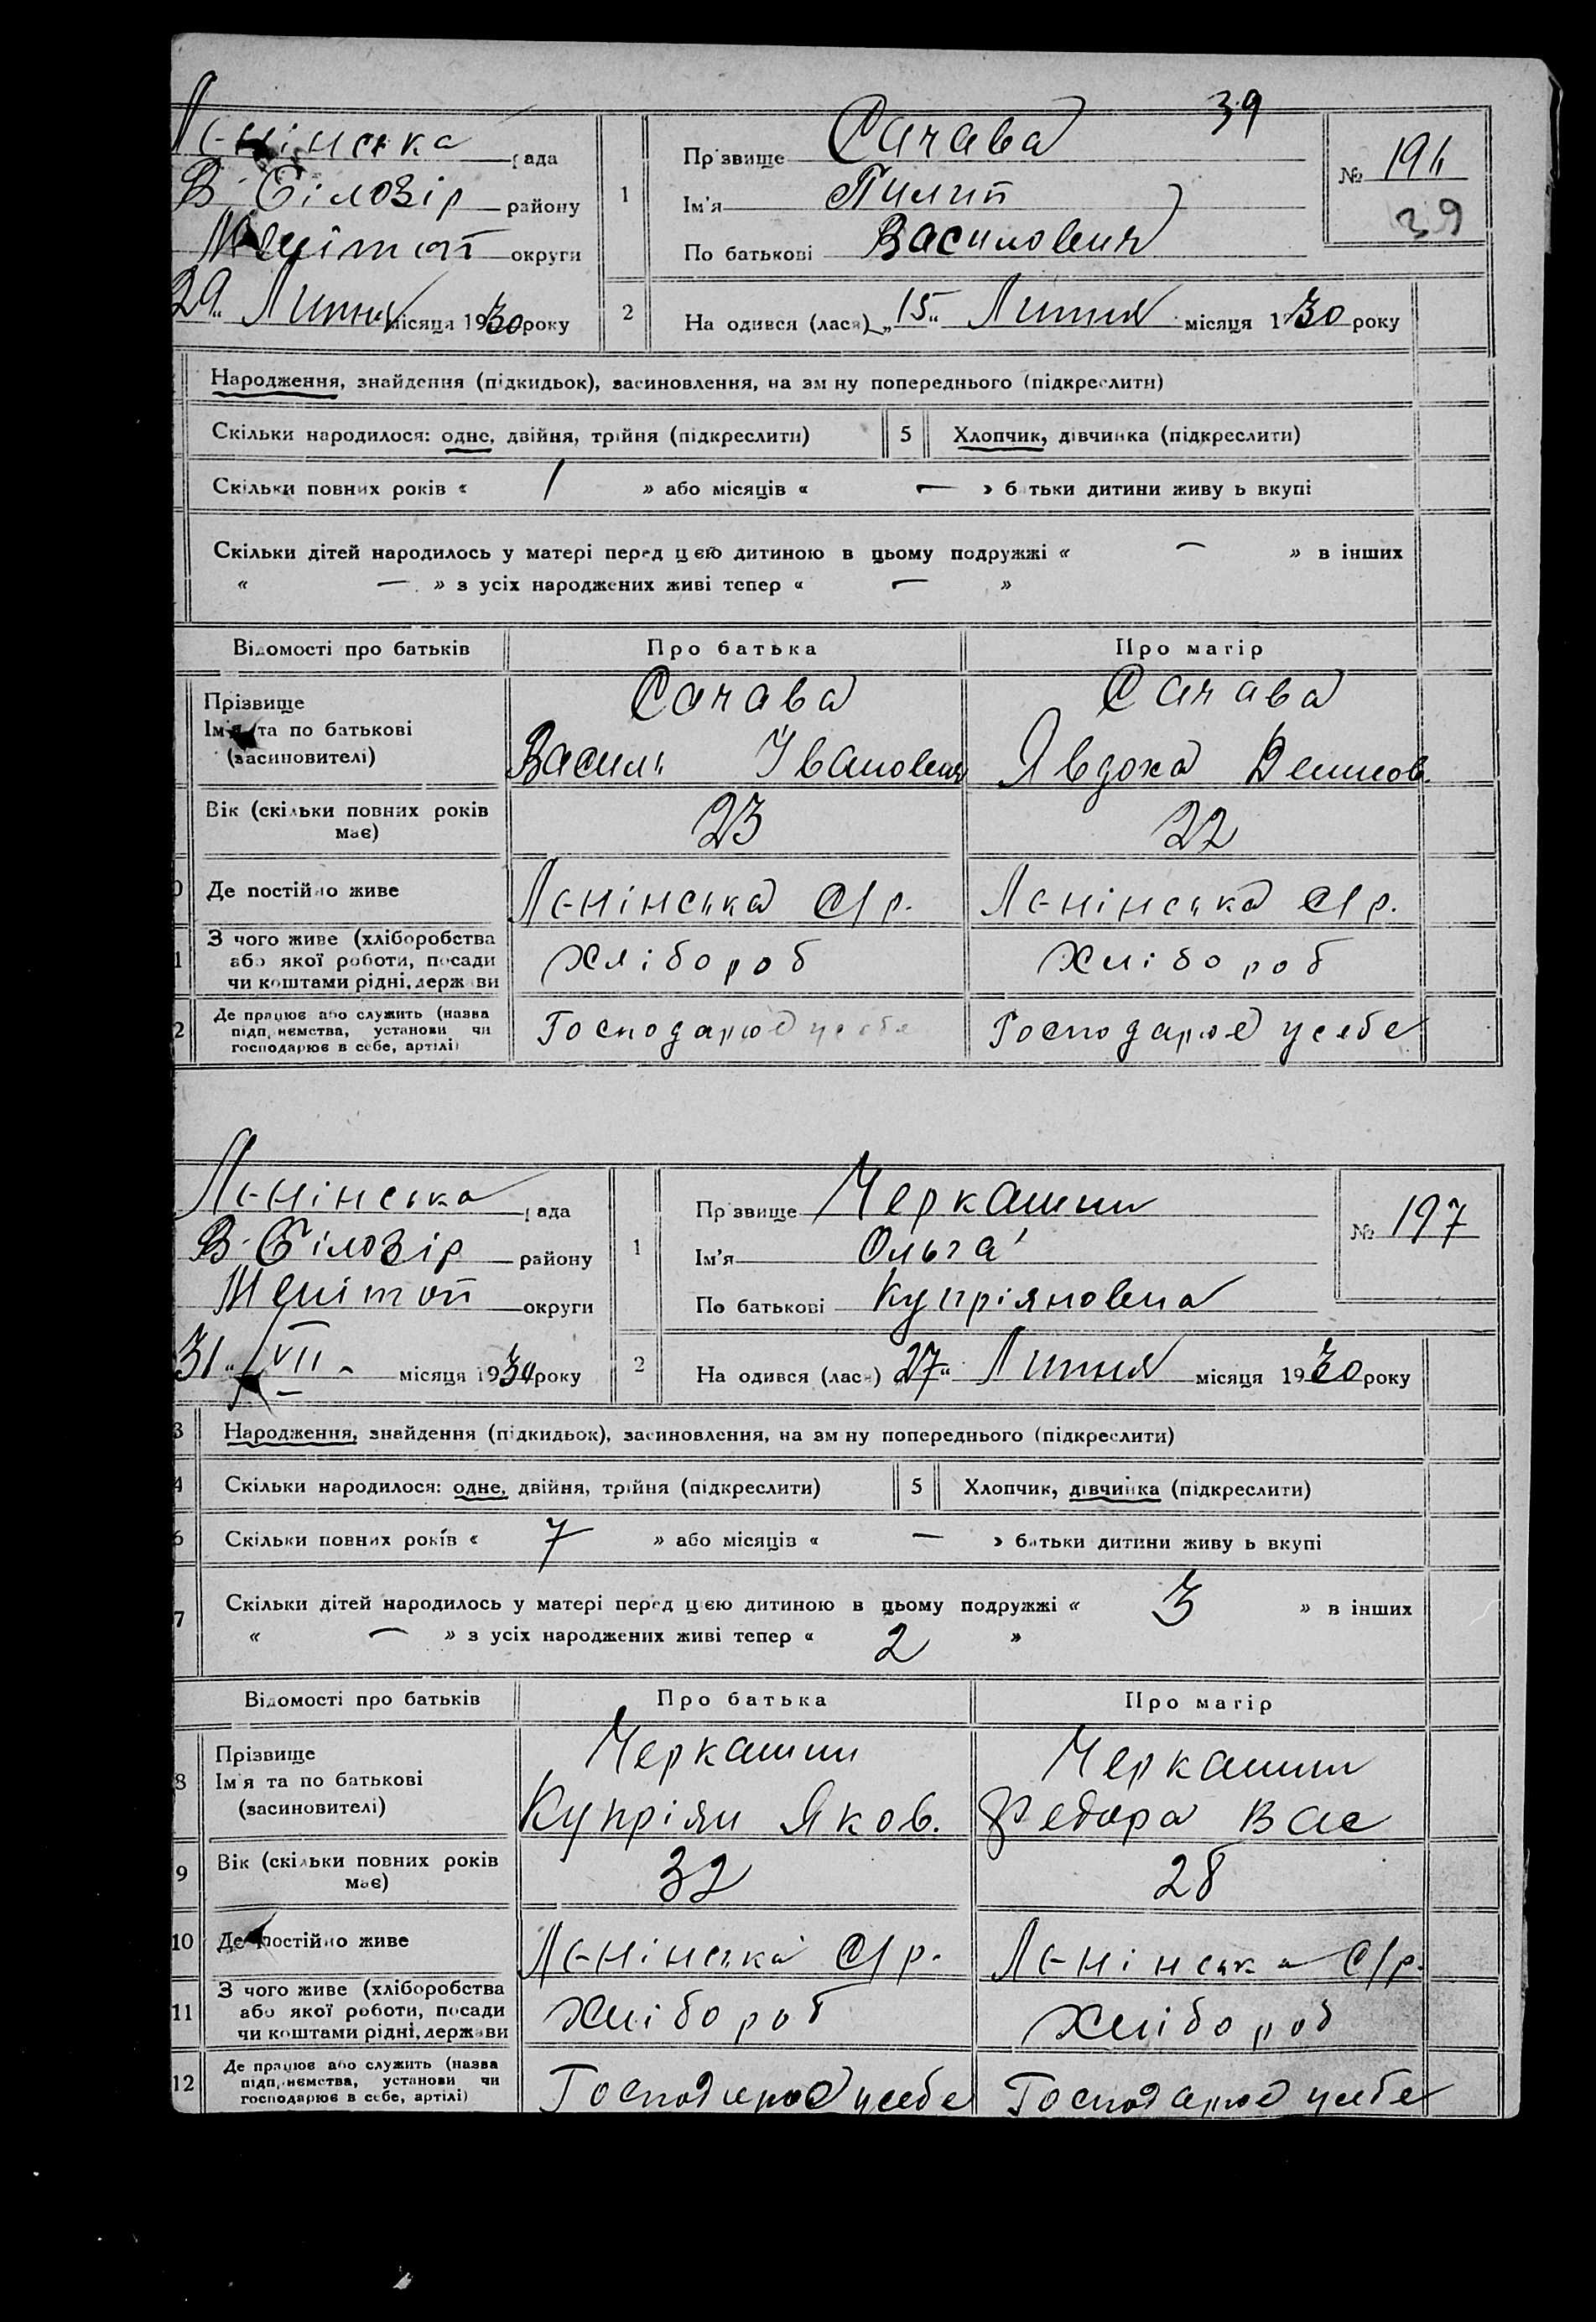 39
Лєнінська рада
В. Білозір району
Мелітоп округи
29 Липня місяця 1930 року
1
Прізвище Сачава
Ім'я Пилип
По батькові Василович
№ 196
39
2
На одився (лася) „15" Липня місяця 1930 року
Народження, знайдення (підкидьок), засиновлення, на зм ну попереднього (підкреслити)
Скільки народилося: одне, двійня, трійня (підкреслити)
5 Хлопчик, дівчинка (підкреслити)
Скільки повних років « 1 » або місяців « — » батьки дитини живу ь вкупі
Скільки дітей народилось у матері перед цією дитиною в цьому подружжі « — » в інших
« — » з усіх народжених живі тепер « — »
Відомості про батьків Про батька Про матір
Прізвище
Ім'я та по батькові
(засиновителі)
Сачава
Василь Іванович
Сачава
Явдоха Денисов.
Вік (скільки повних років
має)
23
22
0 Де постійно живе Лєнінська С/р. Лєнінська С/р.
1 З чого живе (хліборобства
або якої роботи, посади
чи коштами рідні, держави
Хлібороб
Хлібороб
2 Де працює або служить (назва
підп, нємства, установи чи
господарює в себе, артілі)
Господарює усебе
Господарює усебе
Лєнінська рада
В. Білозір району
Мелітоп округи
31 VII місяця 1930 року
1
Прізвище Черкашин
Ім'я Ольга
По батькові Купріяновена
№ 197
2
На одився (лася) „27" Липня місяця 1930 року
3 Народження, знайдення (підкидьок), засиновлення, на зм ну попереднього (підкреслити)
4 Скільки народилося: одне, двійня, трійня (підкреслити)
5 Хлопчик, дівчинка (підкреслити)
6 Скільки повних років « 7 » або місяців « — » батьки дитини живу ь вкупі
7 Скільки дітей народилось у матері перед цією дитиною в цьому подружжі « 3 » в інших
« — » з усіх народжених живі тепер « 2 »
Відомості про батьків Про батька Про матір
8 Прізвище
Ім'я та по батькові
(засиновителі)
Черкашин
Купріян Яков.
Черкашин
Федора Вас
9 Вік (скільки повних років
має)
32
28
10 Де постійно живе Лєнінська С/р. Лєнінська С/р.
11 З чого живе (хліборобства
або якої роботи, посади
чи коштами рідні, держави
Хлібороб
Хлібороб
12 Де працює або служить (назва
підп, нємства, установи чи
господарює в себе, артілі)
Господарює усебе
Господарює усебе